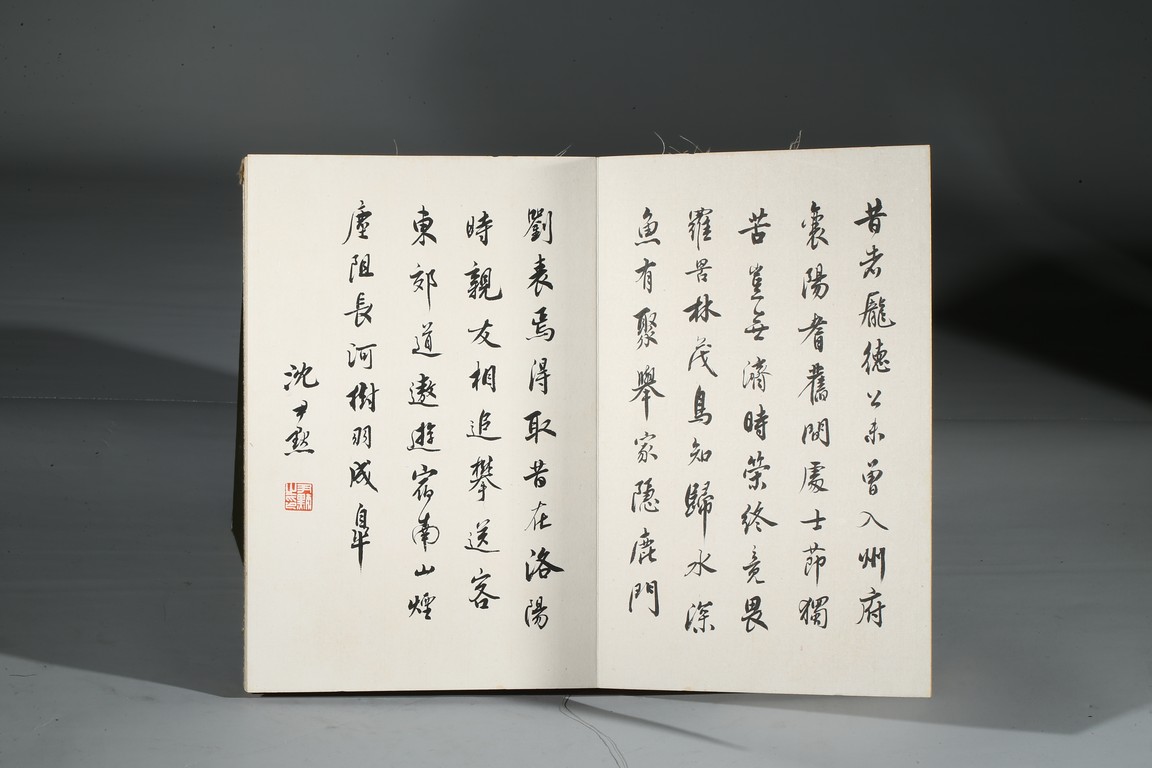 昔者龐德公未曾入州府
襄陽耆舊間處士節獨
苦豈無濟時策終竟畏
羅罟林茂鳥知歸水深
魚有聚舉家隱鹿門
劉表焉得取昔在洛陽
時親友相追攀送客
東郊道遨遊宿南山煙
塵阻長河樹羽成皋
沈尹默